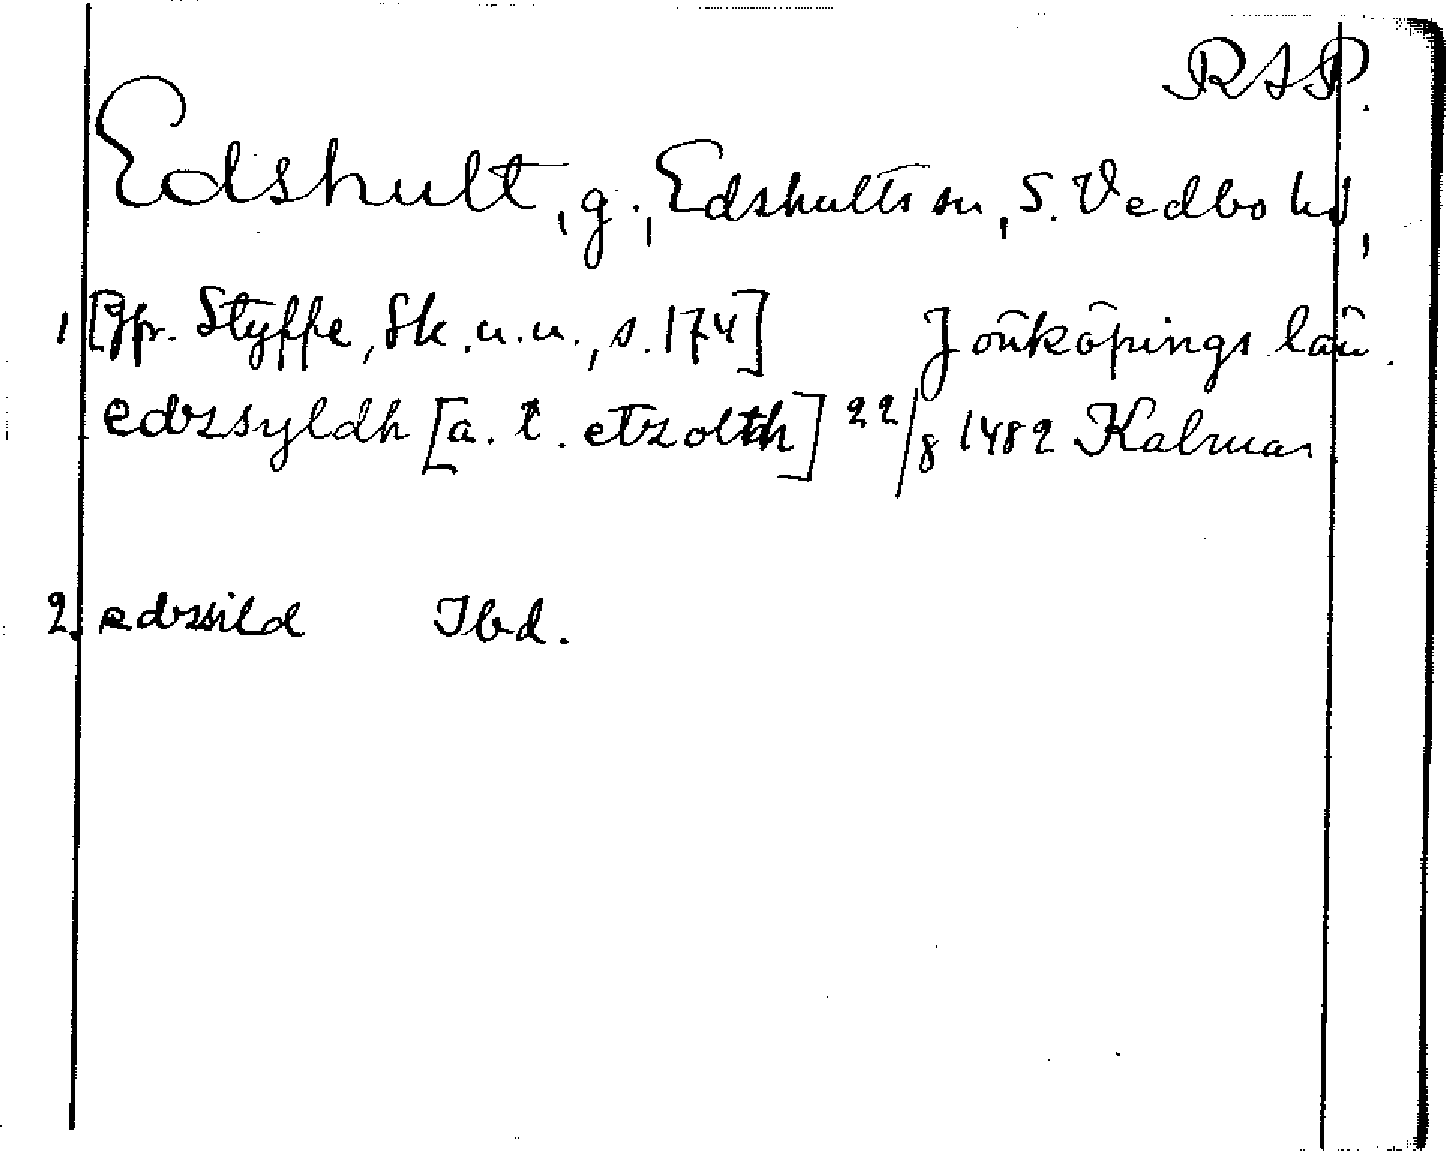 RAP.
Edshult, g., Edshults sn, S. Vedbo hd,
1 [Jfr. Styffe, Sk. u. u., s. 174] Jönköpings län.
edzsyldh [a. t. etzolth] 22/8 1482 Kalmar
2. edzsild Ibd.